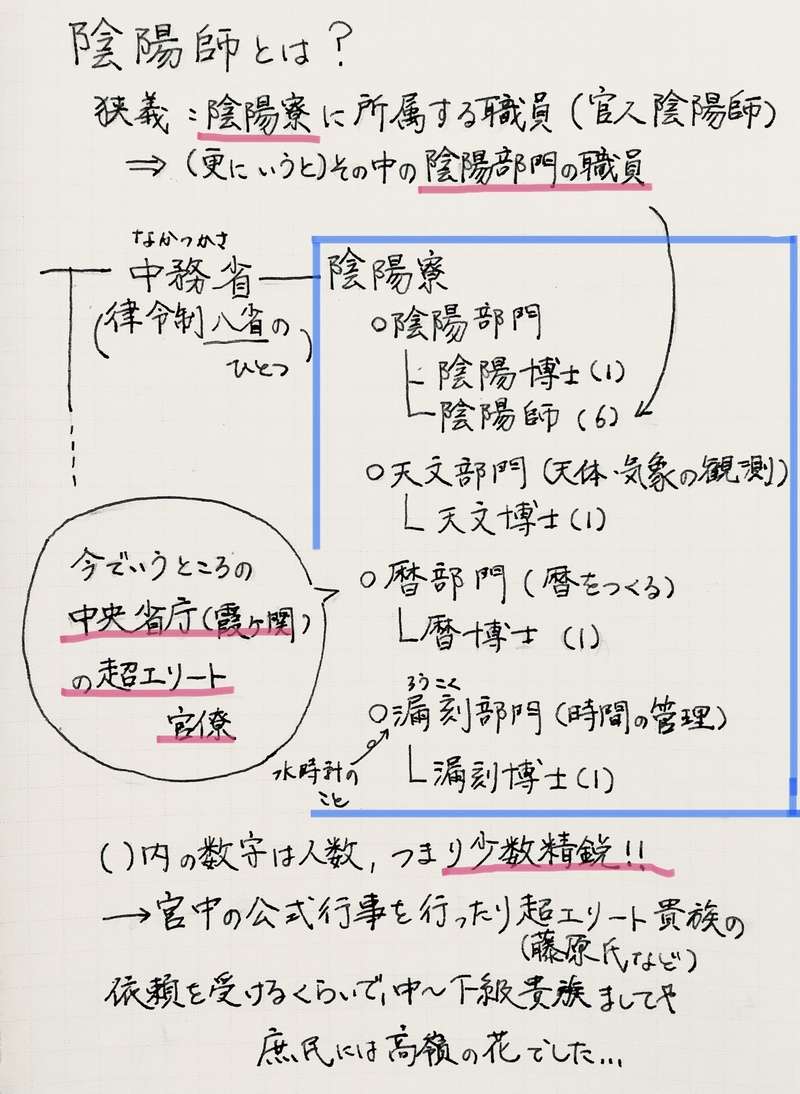 陰陽師とは？
狭義：陰陽寮に所属する職員（官人陰陽師）
⇒（更にいうと）その中の陰陽部門の職員
なかつかさ
中務省
（律令制八省の
ひとつ）
陰陽寮
○陰陽部門
陰陽博士（1）
陰陽師（6）
○天文部門（天体・気象の観測）
天文博士（1）
○暦部門（暦をつくる）
暦博士（1）
ろうこく
○漏刻部門（時間の管理）
漏刻博士（1）
水時計の
こと
今でいうところの
中央省庁（霞ヶ関）
の超エリート
官僚
（）内の数字は人数，つまり少数精鋭！！
→宮中の公式行事を行ったり超エリート貴族の
（藤原氏など）
依頼を受けるくらいで，中〜下級貴族ましてや
庶民には高嶺の花でした…